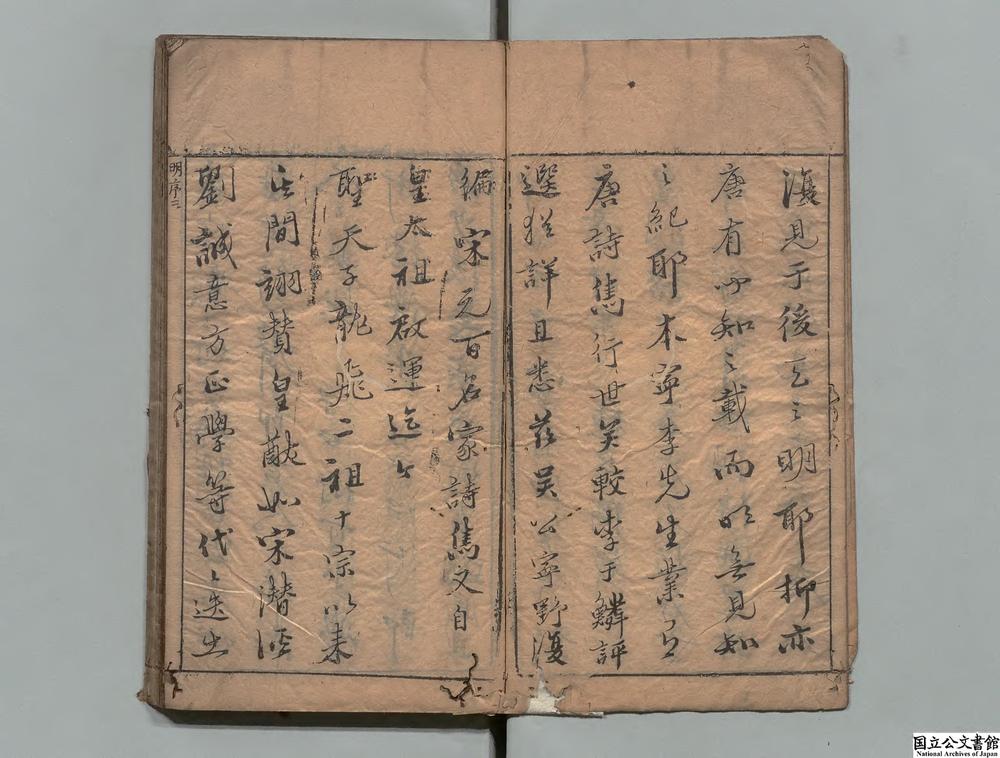 復見于後之之明耶抑亦
唐有聞知之載而明無見知
之紀耶本寧李先生業已
唐詩雋行世矣較李于鱗評
選猶詳且悉茲吳公寧野復
編 宋元百名家詩雋文自
皇太祖啟運迄今
聖天子龍飛二祖十宗以來
其間翊贊皇猷如宋潛溪
劉誠意方正學等代々迭出
明序三
国立公文書館
National Archives of Japan